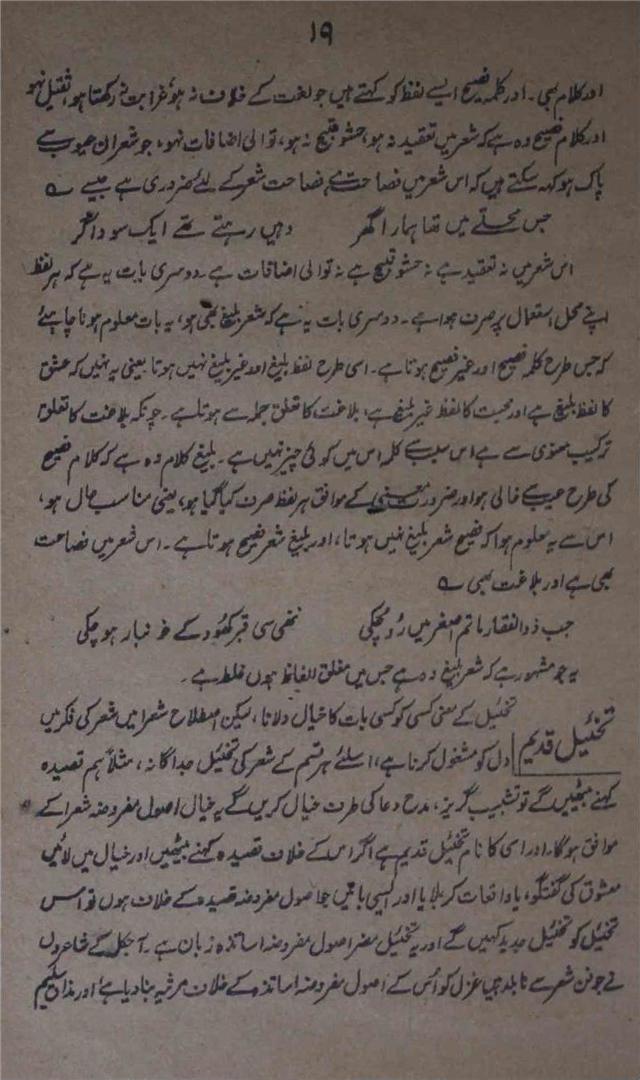 ۱۹
اور کلام بھی۔ اور کلمہ فصیح ایسے لفظ کو کہتے ہیں جو لغت کے خلاف نہ ہو، غرابت نہ رکھتا ہو، ثقیل نہو
اور کلام فصیح وہ ہے کہ شعر میں تعقید نہ ہو، حشو قبیح نہ ہو، توالی اضافات نہو، جو شعر ان عیوب سے
پاک ہو کہہ سکتے ہیں کہ اس شعر میں فصاحت ہے، فصاحت شعر کے لئے ضروری ہے جیسے ؎
جس محلے میں تھا ہمارا گھر وہیں رہتے تھے ایک سوداگر
اس شعر میں نہ تعقید ہے نہ حشو قبیح ہے نہ توالی اضافات ہے۔ دوسری بات یہ ہے کہ ہر لفظ
اپنے محل استعمال پر صرف ہوا ہے۔ دوسری بات یہ ہے کہ شعر بلیغ بھی ہو، یہ بات معلوم ہونا چاہیئے
کہ جس طرح کلمہ فصیح اور غیر فصیح ہوتا ہے۔ اسی طرح لفظ بلیغ اور غیر بلیغ نہیں ہوتا یعنی یہ نہیں کہ عشق
کا لفظ بلیغ ہے اور محبت کا لفظ غیر بلیغ ہے، بلاغت کا تعلق جملہ سے ہوتا ہے۔ چونکہ بلاغت کا تعلق
ترکیب معنوی سے ہے اس سبب سے کلمہ اس میں کوئی چیز نہیں ہے۔ بلیغ کلام وہ ہے کہ کلام فصیح
کی طرح عیب سے خالی ہو اور ضرورت معنی کے موافق ہر لفظ صرف کیا گیا ہو، یعنی مناسب حال ہو،
اس سے یہ معلوم ہوا کہ فصیح شعر بلیغ نہیں ہوتا، اور بلیغ شعر فصیح ہوتا ہے۔ اس شعر میں فصاحت
بھی ہے اور بلاغت بھی ؎
جب ذوالفقار ماتم اصغر میں رو چکی ننھی سی قبر کھود کے غبار ہو چکی
یہ جو مشہور ہے کہ شعر بلیغ وہ ہے جس میں مغلق الفاظ ہوں غلط ہے۔
تخئیل کے معنی کسی کو کسی بات کا خیال دلانا، لیکن اصطلاح شعرا میں شعر کی فکر میں
تخئیل قدیم دل کو مشغول کرنا ہے، اسلئے ہر قسم کے شعر کی تخئیل جداگانہ، مثلاً ہم قصیدہ
کہنے بیٹھیں گے تو تشبیب گریز، مدح دعا کی طرف خیال کریں گے یہ خیال اصول مفروضہ شعرا کے
موافق ہوگا۔ اور اسی کا نام تخئیل قدیم ہے اگر اس کے خلاف قصیدہ کہنے بیٹھیں اور خیال میں لائیں
معشوق کی گفتگو، یا واقعات کربلا یا اور ایسی باتیں جو اصول مفروضہ قصیدہ کے خلاف ہوں تو اس
تخئیل کو تخئیل جدید کہیں گے اور یہ تخئیل مضر اصول مفروضہ اساتذہ زبان ہے۔ آجکل کے شاعروں
نے جو فن شعر سے نابلد ہیں غزل کو اُس کے اصول مفروضہ اساتذہ کے خلاف مرثیہ بنا دیا ہے اور مذاق سلیم